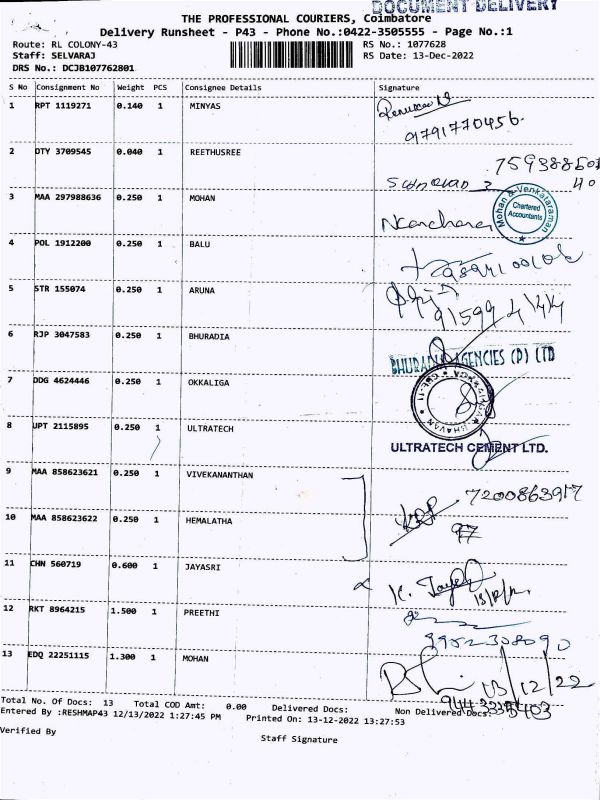 DOCUMENT DELIVERY
THE PROFESSIONAL COURIERS, Coimbatore
Delivery Runsheet - P43 - Phone No.:0422-3505555 - Page No.:1
Route: RL COLONY-43 RS No.: 1077628
Staff: SELVARAJ RS Date: 13-Dec-2022
DRS No.: DCJB107762801
S No Consignment No Weight PCS Consignee Details Signature
1 RPT 1119271 0.140 1 MINYAS
9791770456
2 DTY 3709545 0.040 1 REETHUSREE
3 MAA 297988636 0.250 1 MOHAN
Mohan & Venkataraman
Chartered
Accountants
4 POL 1912200 0.250 1 BALU
5 STR 155074 0.250 1 ARUNA
6 RJP 3047583 0.250 1 BHURADIA
BHURADIA AGENCIES (P) LTD
7 DDG 4624446 0.250 1 OKKALIGA
8 UPT 2115895 0.250 1 ULTRATECH
ULTRATECH CEMENT LTD.
9 MAA 858623621 0.250 1 VIVEKANANTHAN
7200863917
10 MAA 858623622 0.250 1 HEMALATHA
97
11 CHN 560719 0.600 1 JAYASRI
12 RKT 8964215 1.500 1 PREETHI
9952308090
13 EDQ 22251115 1.300 1 MOHAN
13/12/22
Total No. Of Docs: 13 Total COD Amt: 0.00 Delivered Docs: Non Delivered Docs:
Entered By :RESHMAP43 12/13/2022 1:27:45 PM Printed On: 13-12-2022 13:27:53
Verified By
Staff Signature